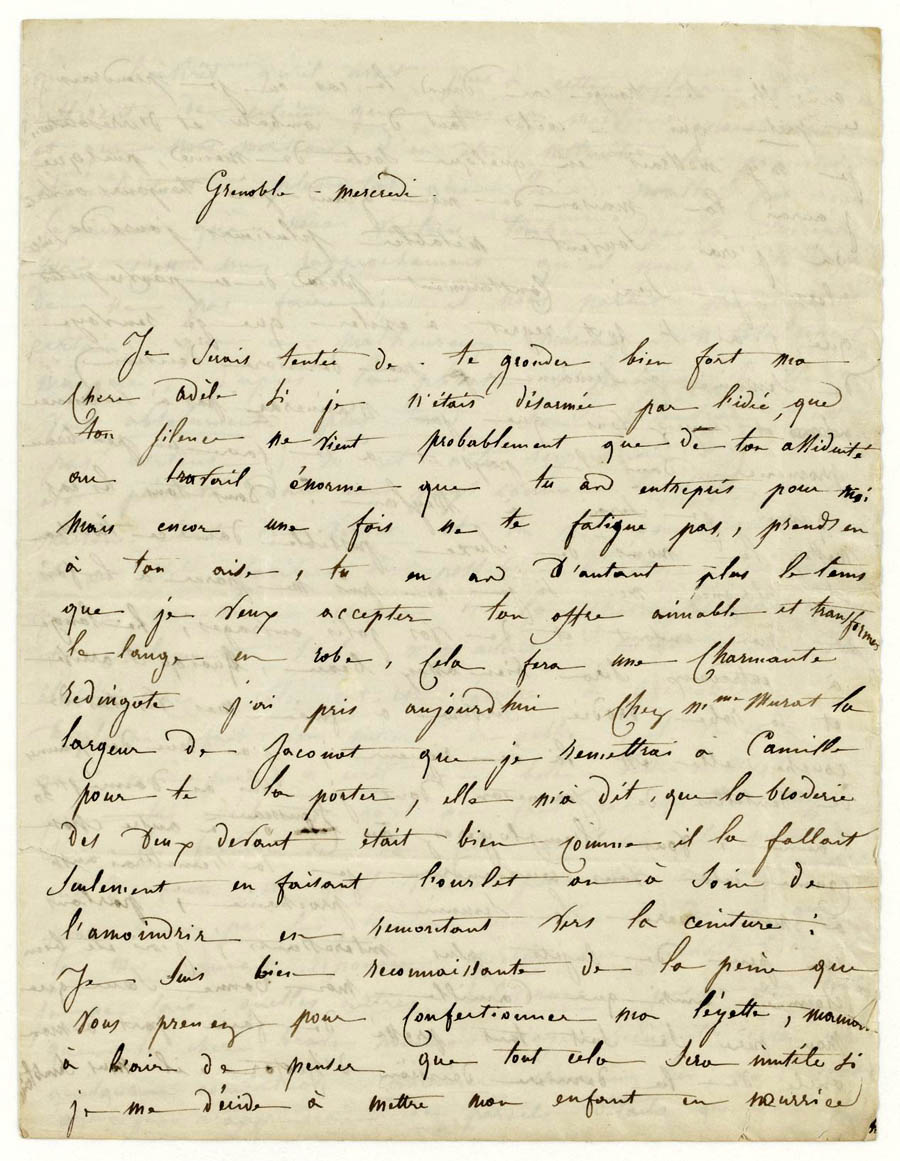 Grenoble - mercredi.
Je serais tentée de te gronder bien fort ma
chere adèle si je n'étais désarmée par l'idée, que
ton silence ne vient probablement que de ton assiduité
au travail énorme que tu as entrepris pour moi
mais encor une fois ne te fatigue pas, prends en
à ton aise, tu en as d'autant plus le tems
que je veux accepter ton offre aimable et transformer
le lange en robe, cela fera une charmante
redingote j'ai pris aujourd'hui chez mme Murat la
largeur de jaconat que je remettrai à Camille
pour te la porter, elle m'a dit, que la broderie
des deux devant était bien comme il la fallait
seulement en faisant l'ourlet on à soin de
l'amoindrir en remontant vers la ceinture :
Je suis bien reconnaissante de la peine que
vous prenez pour confectionner ma léyette, maman
à l'air de penser que tout cela sera inutile si
je me décide à mettre mon enfant en nourrice